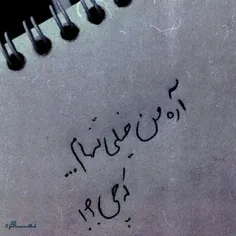 آره من خیلی تنهام...
که چی؟!